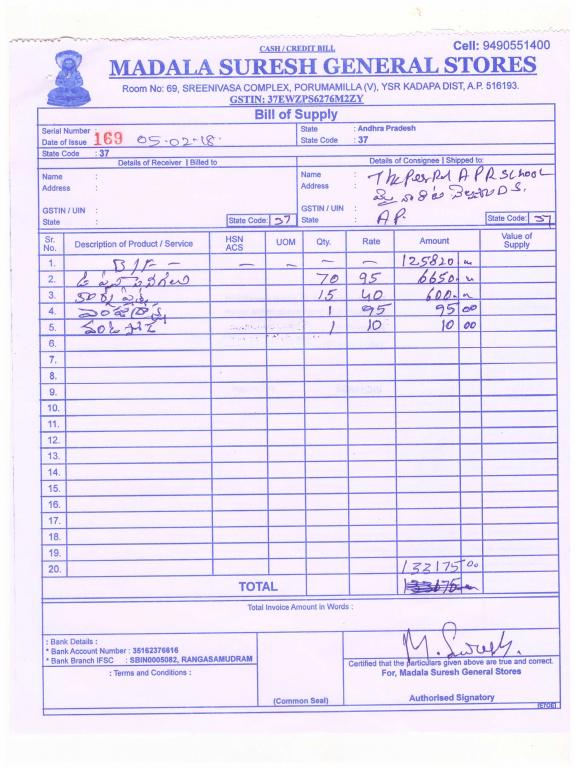 CASH / CREDIT BILL
Cell: 9490551400
MADALA SURESH GENERAL STORES
Room No: 69, SREENIVASA COMPLEX, PORUMAMILLA (V), YSR KADAPA DIST, A.P. 516193.
GSTIN: 37EWZPS6276M2ZY
Bill of Supply
Serial Number : 169
Date of Issue 05-02-18.
State Code : 37
State : Andhra Pradesh
State Code : 37
Details of Receiver | Billed to
Details of Consignee | Shipped to:
Name :
Address :
GSTIN / UIN :
State : State Code: 37
Name : The A P R School
Address :
GSTIN / UIN :
State : A.P. State Code: 37
Sr. No. Description of Product / Service HSN ACS UOM Qty. Rate Amount Value of Supply
1. B/F – – – – – 125820
2. 70 95 6650
3. 15 40 600
4. 1 95 95 00
5. 1 10 10 00
6.
7.
8.
9.
10.
11.
12.
13.
14.
15.
16.
17.
18.
19.
20. 133175 00
TOTAL
Total Invoice Amount in Words :
: Bank Details :
* Bank Account Number : 35162376616
* Bank Branch IFSC : SBIN0005082, RANGASAMUDRAM
: Terms and Conditions :
(Common Seal)
M. Suresh.
Certified that the particulars given above are true and correct.
For, Madala Suresh General Stores
Authorised Signatory
(E?OE)